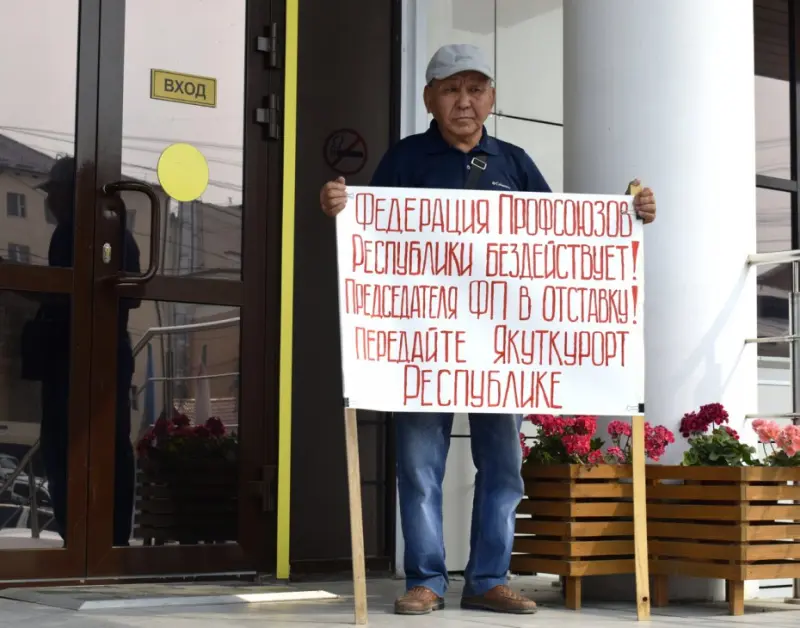 ВХОД
Columbia
ФЕДЕРАЦИЯ ПРОФСОЮЗОВ
РЕСПУБЛИКИ БЕЗДЕЙСТВУЕТ!
ПРЕДСЕДАТЕЛЯ ФП В ОТСТАВКУ!
ПЕРЕДАЙТЕ ЯКУТКУРОРТ
РЕСПУБЛИКЕ